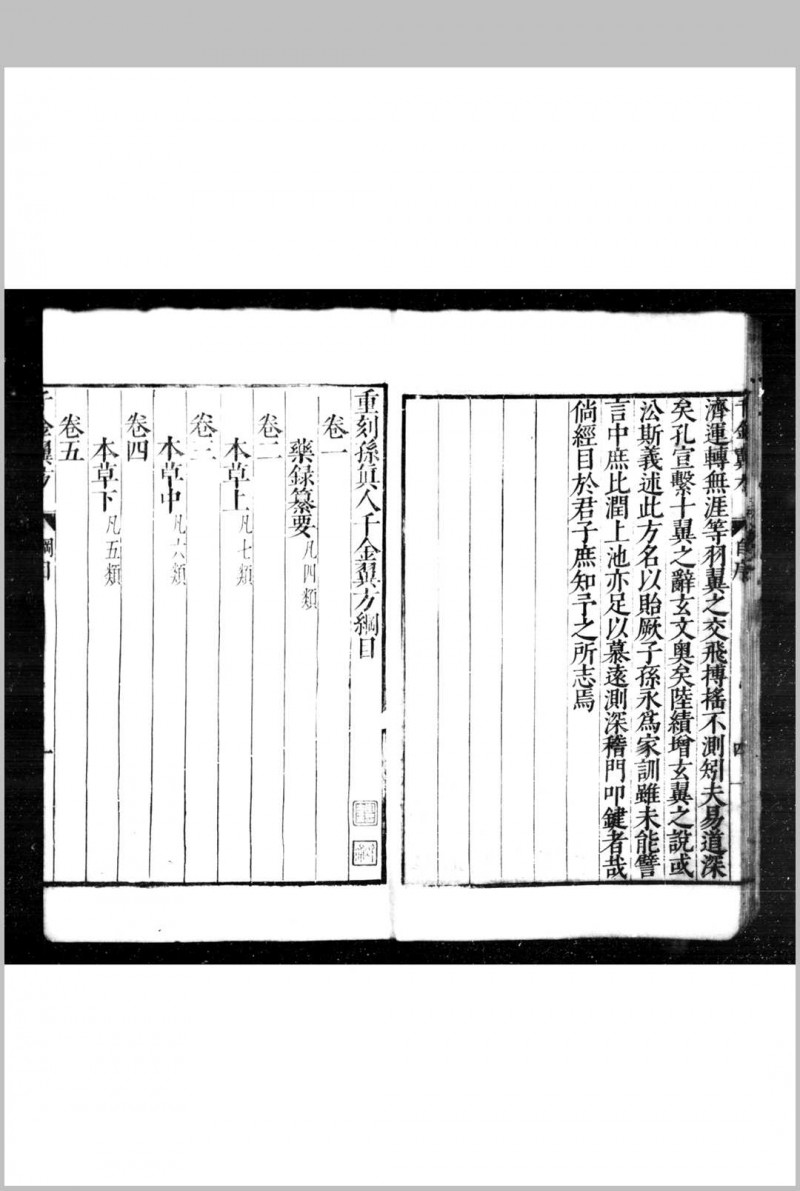 千金翼方 自序 四
濟運轉無涯等羽翼之交飛摶搖不測矧夫易道深
矣孔宣繫十翼之辭玄文奧矣陸績增玄翼之說或
沿斯義述此方名以貽厥子孫永爲家訓雖未能譬
言中庶比潤上池亦足以慕遠測深稽門叩鍵者哉
倘經目於君子庶知予之所志焉
重刻孫眞人千金翼方綱目
卷一
藥録纂要凡四類
卷二
本草上凡七類
卷三
本草中凡六類
卷四
本草下凡五類
卷五
千金翼方 綱目 一